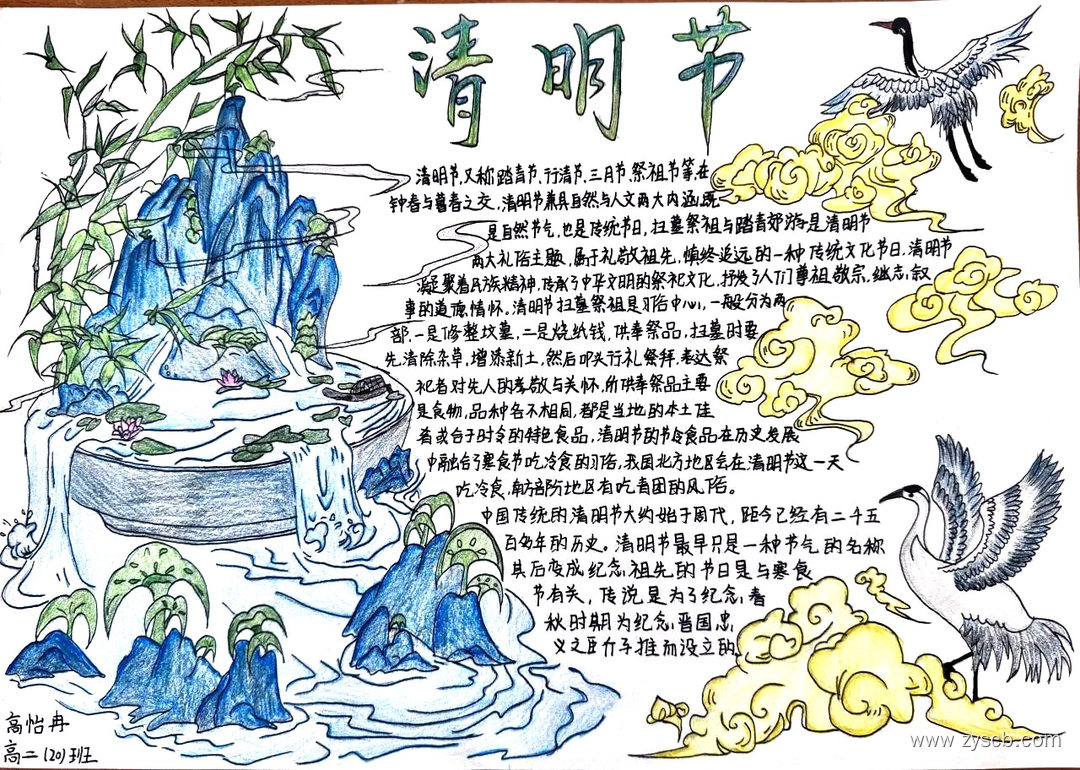 清明节
清明节,又称踏青节、行清节、三月节、祭祖节等,在
仲春与暮春之交,清明节兼具自然与人文两大内涵,既
是自然节气,也是传统节日,扫墓祭祖与踏青郊游是清明节
两大礼俗主题、属于礼敬祖先,慎终追远的一种传统文化节日、清明节
凝聚着民族精神,传承了中华文明的祭祀文化,抒发了人们尊祖敬宗、继志、叙
事的道德情怀。清明节扫墓祭祖是习俗中心,一般分为两
部、一是修整坟墓、二是烧纸钱,供奉祭品,扫墓时要
先清除杂草,增添新土,然后叩头行礼祭拜,表达祭
祀者对先人的孝敬与关怀,所供奉祭品主要
是食物,品种各不相同,都是当地的本土佳
肴或合于时令的特色食品,清明节的节令食品在历史发展
中融合了寒食节吃冷食的习俗,我国北方地区会在清明节这一天
吃冷食,南方部分地区有吃青团的风俗。
中国传统的清明节大约始于周代,距今已经有二千五
百多年的历史。清明节最早只是一种节气的名称
其后变成纪念祖先的节日是与寒食
节有关,传说是为了纪念春
秋时期为纪念晋国忠
义之臣介子推而设立的
高怡冉
高二(20)班
www.zyscb.com